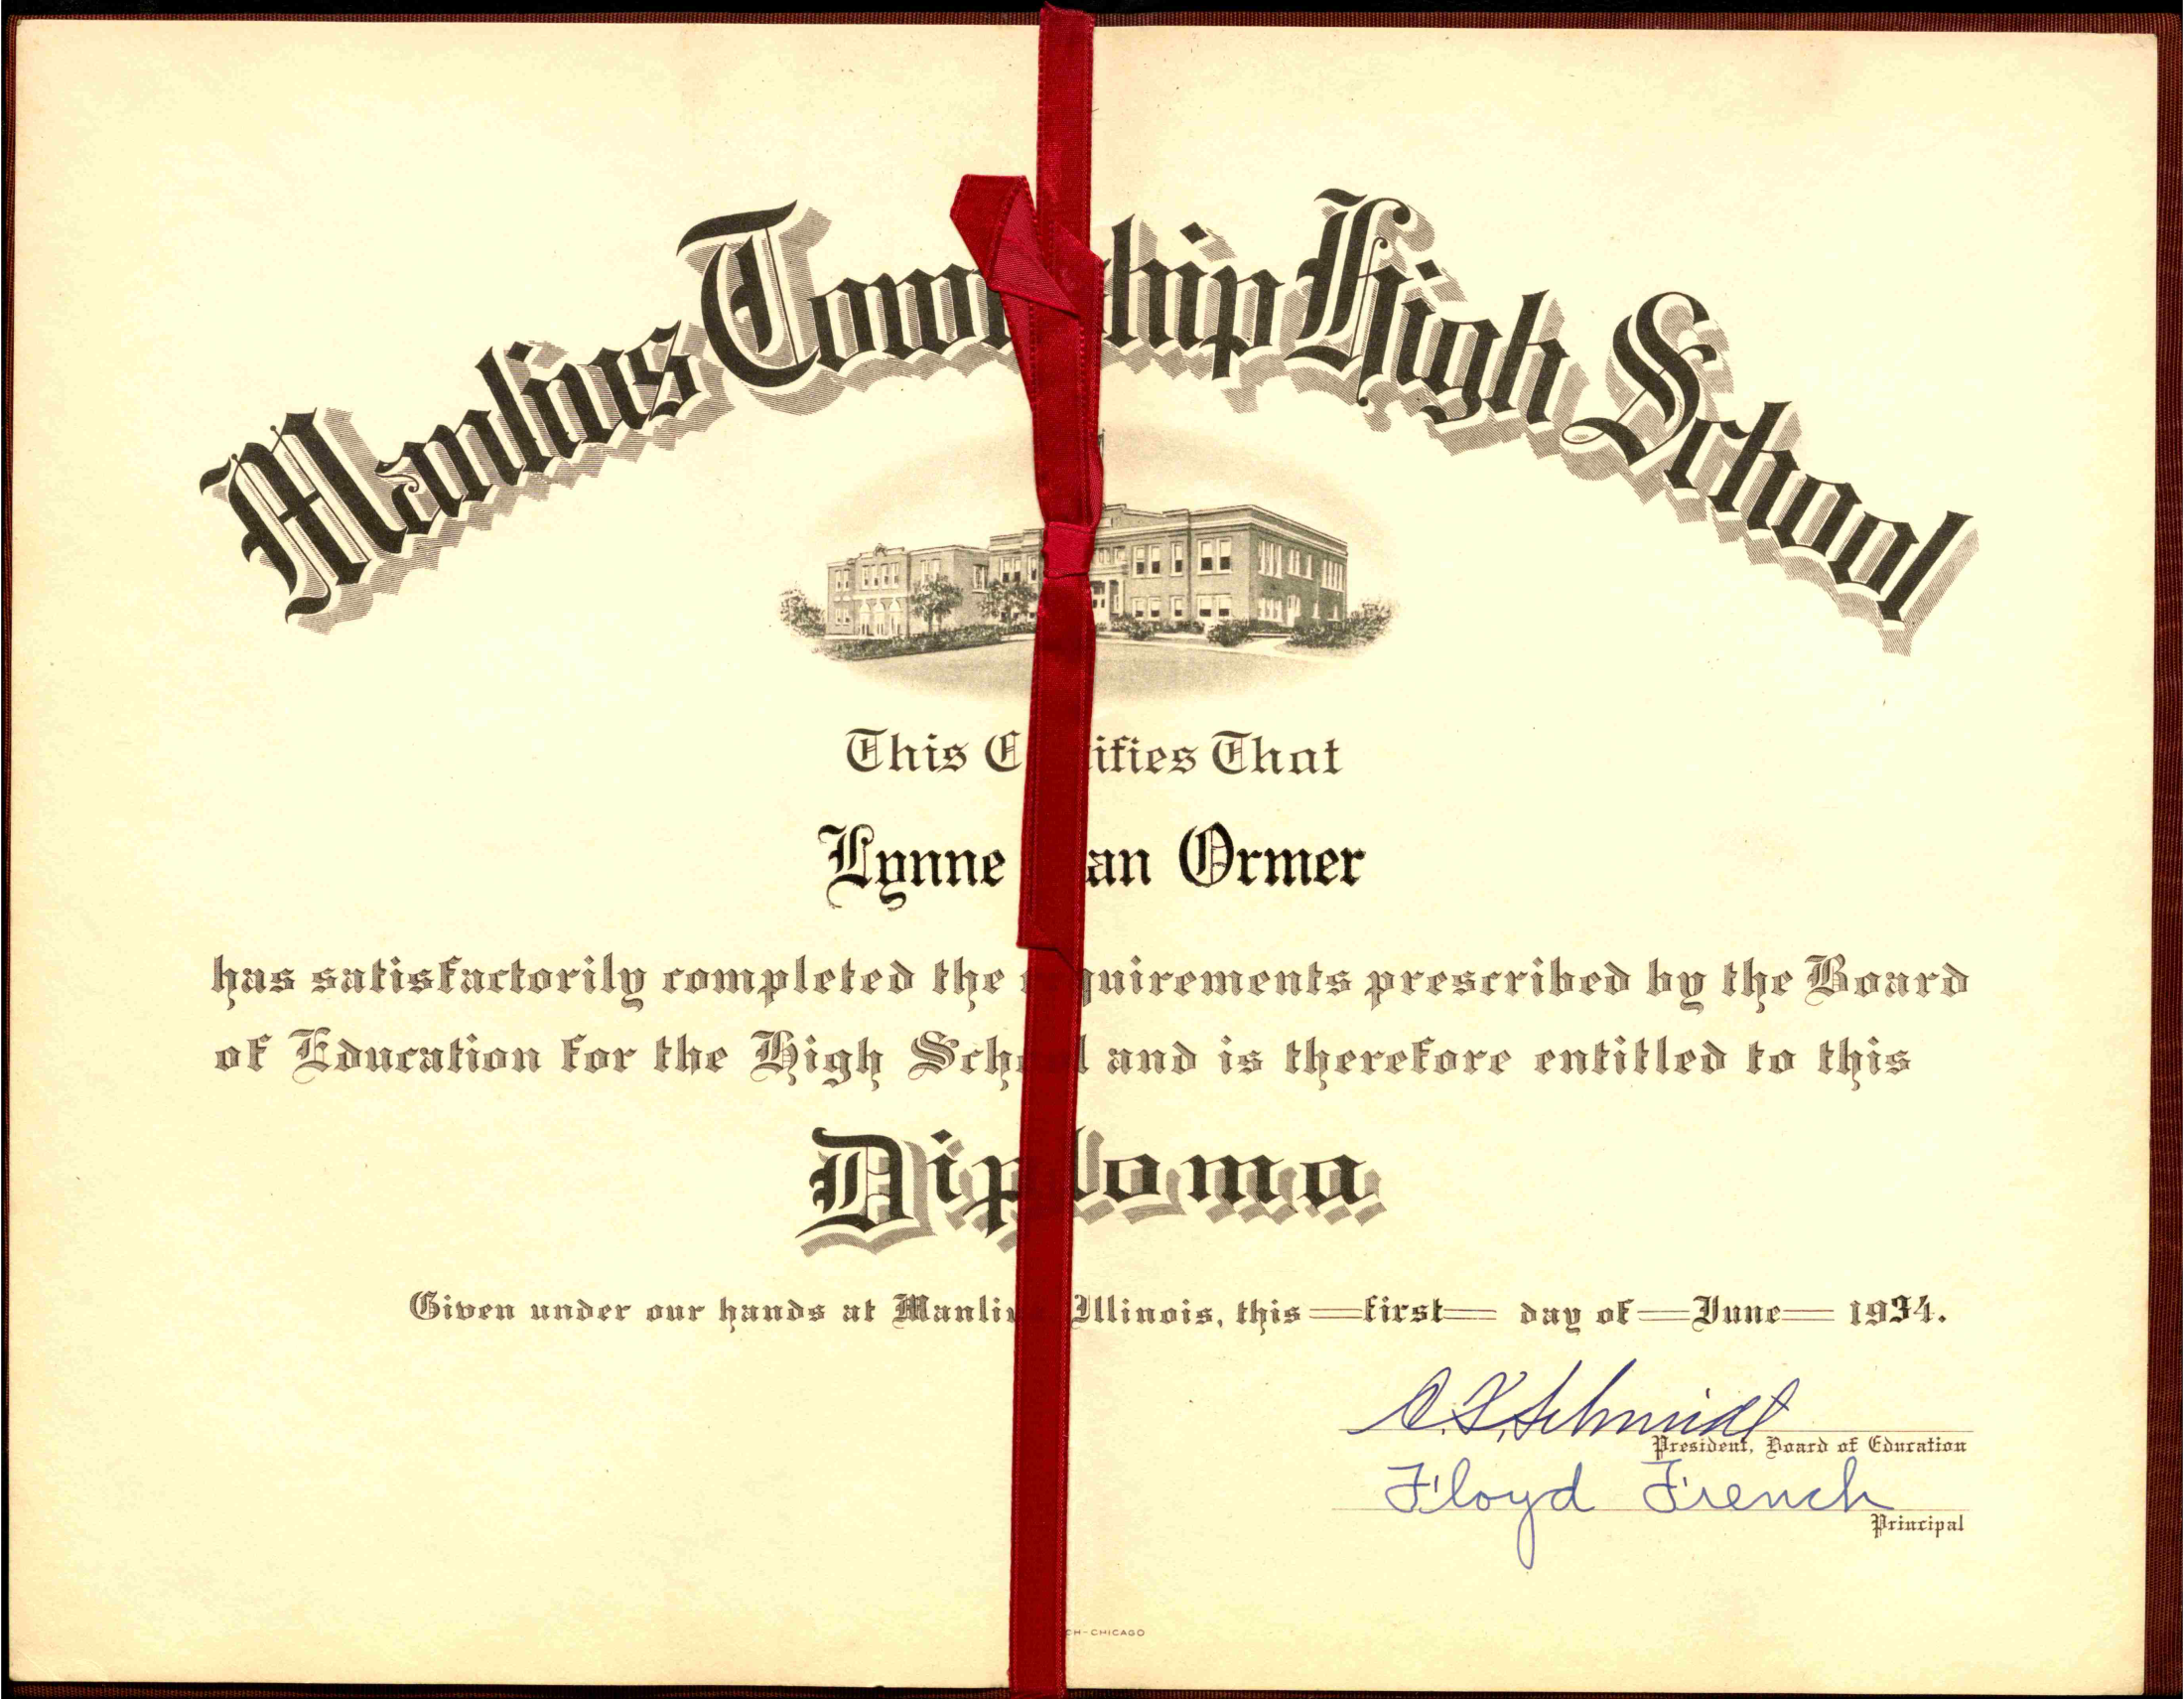 Manlius Township High School
This Certifies That
Lynne Van Ormer
has satisfactorily completed the requirements prescribed by the Board
of Education for the High School and is therefore entitled to this
Diploma
Given under our hands at Manlius Illinois, this first day of June 1934.
Schmidt
President, Board of Education
Floyd French
Principal
CH-CHICAGO